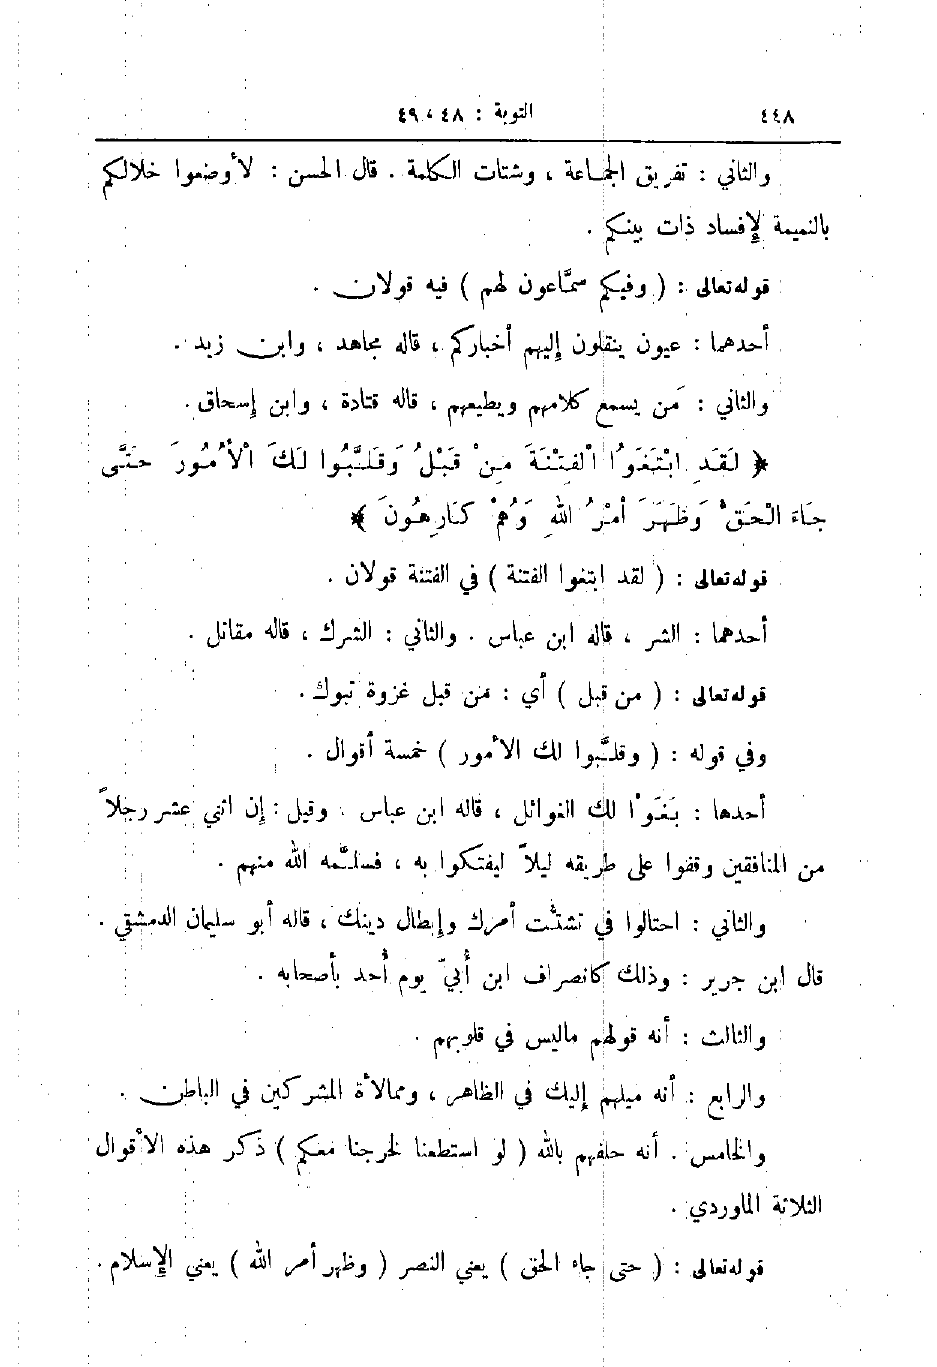 ٤٤٨ التوبة : ٤٨ ، ٤٩
والثاني : تفريق الجماعة ، وشتات الكلمة . قال الحسن : لأوضعوا خلالكم
بالنميمة لإفساد ذات بينكم .
قوله تعالى : ( وفيكم سمَّاعون لهم ) فيه قولان .
أحدهما : عيون ينقلون إليهم أخباركم ، قاله مجاهد ، وابن زيد .
والثاني : مَن يسمع كلامهم ويطيعهم ، قاله قتادة ، وابن إسحاق .
﴿ لَقَدِ ابْتَغَوُا الْفِتْنَةَ مِنْ قَبْلُ وَقَلَّبُوا لَكَ الْأُمُورَ حَتَّى
جَاءَ الْحَقُّ وَظَهَرَ أَمْرُ اللهِ وَهُمْ كَارِهُونَ ﴾
قوله تعالى : ( لقد ابتغوا الفتنة ) في الفتنة قولان .
أحدهما : الشر ، قاله ابن عباس . والثاني : الشرك ، قاله مقاتل .
قوله تعالى : ( من قبل ) أي : مَن قبل غزوة تبوك .
وفي قوله : ( وقلَّبوا لك الأمور ) خمسة أقوال .
أحدها : بَغَوْا لك الغوائل ، قاله ابن عباس . وقيل : إن اثني عشر رجلاً
من المنافقين وقفوا على طريقه ليلاً ليفتكوا به ، فسلَّمه الله منهم .
والثاني : احتالوا في تشتُّت أمرك وإبطال دينك ، قاله أبو سليمان الدمشقي .
قال ابن جرير : وذلك كانصراف ابن أُبيّ يوم أُحد بأصحابه .
والثالث : أنه قولهم ماليس في قلوبهم .
والرابع : أنه ميلهم إليك في الظاهر ، وممالأة المشركين في الباطن .
والخامس . أنه حلفهم بالله ( لو استطعنا لخرجنا معكم ) ذكر هذه الأقوال
الثلاثة الماوردي .
قوله تعالى : ( حتى جاء الحق ) يعني النصر ( وظهر أمر الله ) يعني الإسلام .